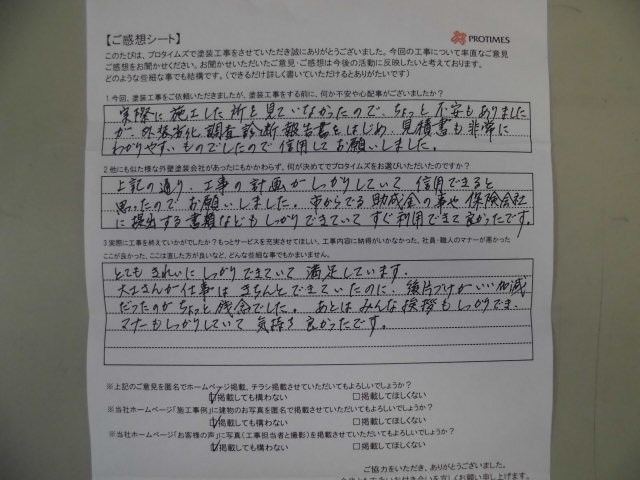 【ご感想シート】
PROTIMES
このたびは、プロタイムズで塗装工事をさせていただき誠にありがとうございました。今回の工事について率直なご意見
ご感想をお聞かせください。お聞かせいただいたご意見・ご感想は今後の活動に反映したいと考えております。
どのような些細な事でも結構です。(できるだけ詳しく書いていただけるとありがたいです)
1.今回、塗装工事をご依頼いただきましたが、塗装工事をする前に、何か不安や心配事がございましたか?
実際に施工した所を見ていなかったので、ちょっと不安もありました
が、外装劣化調査診断報告書をはじめ、見積書も非常に
わかりやすいものでしたので信用してお願いしました。
2.他にも似た様な外壁塗装会社があったにもかかわらず、何が決めてでプロタイムズをお選びいただいたのですか?
上記の通り、工事の計画がしっかりしていて信用できると
思ったのでお願いしました。市からでる助成金の事や保険会社
に提出する書類などもしっかりできていてすぐ利用できて良かったです。
3.実際に工事を終えていかがでしたか?もっとサービスを充実させてほしい、工事内容に納得がいかなかった、社員・職人のマナーが悪かった
ここが良かった、ここは直した方が良いなど、どんな些細な事でもかまいません。
とてもきれいにしっかりできていて満足しています。
大工さんが仕事はきちんとできていたのに、後片づけがいい加減
だったのがちょっと残念でした。あとはみんな挨拶もしっかりでき、
マナーもしっかりしていて気持ち良かったです。
※上記のご意見を匿名でホームページ掲載、チラシ掲載させていただいてもよろしいでしょうか?
☑掲載しても構わない □掲載してほしくない
※当社ホームページ「施工事例」に建物のお写真を匿名で掲載させていただいてもよろしいでしょうか?
☑掲載しても構わない □掲載してほしくない
※当社ホームページ「お客様の声」に写真(工事担当者と撮影)を掲載させていただいてもよろしいでしょうか?
☑掲載しても構わない □掲載してほしくない
ご協力をいただき、ありがとうございました。